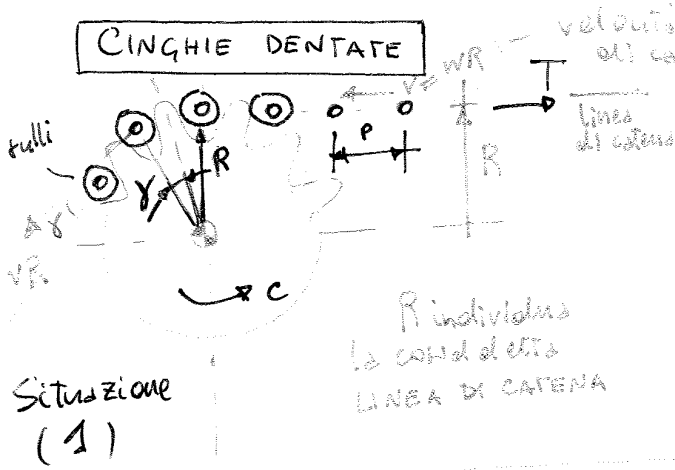 CINGHIE DENTATE
V = WR
T
linea
di catena
rulli
P
R
R
γ
C
R individua
la cosiddetta
LINEA DI CATENA
Situazione
(1)